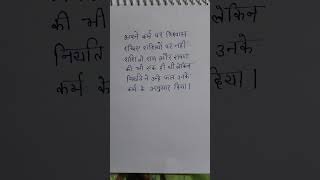 अपने कर्म पर विश्वास
रखिए राशियों पर नहीं
राशि तो राम और रावण
की भी एक ही थी लेकिन
नियति ने उन्हें फल उनके
कर्म के अनुसार दिया।
की भी
नियति
कर्म के
उनके
दिया।